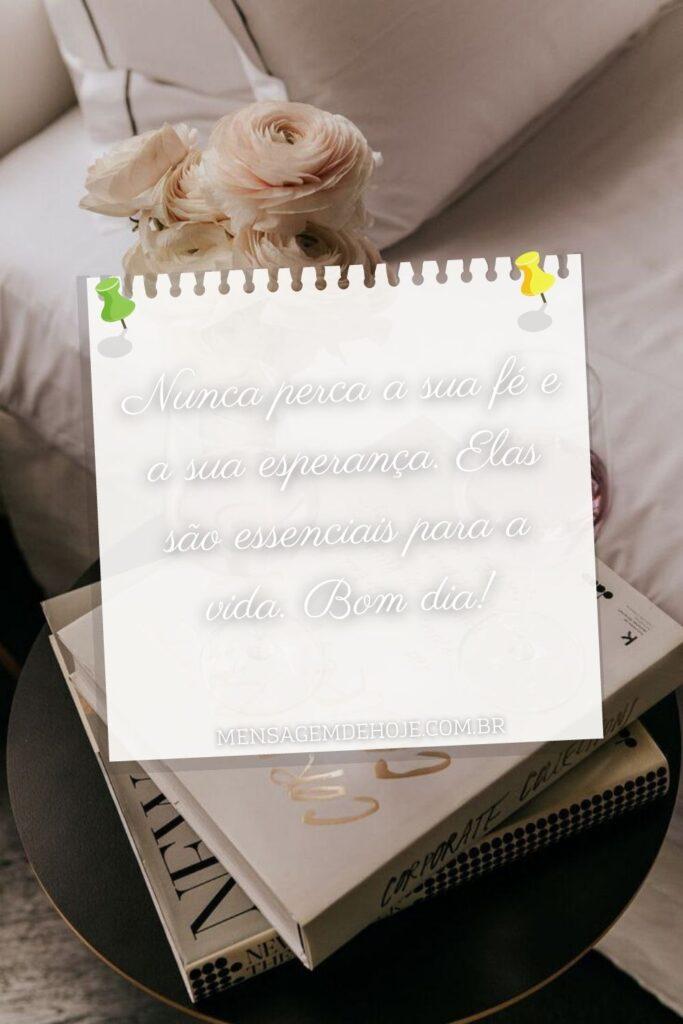 Nunca perca a sua fé e
a sua esperança. Elas
são essenciais para a
vida. Bom dia!
MENSAGEMDEHOJE.COM.BR
K
CORPORATE COLLECTION!
NEW
NEW
THE